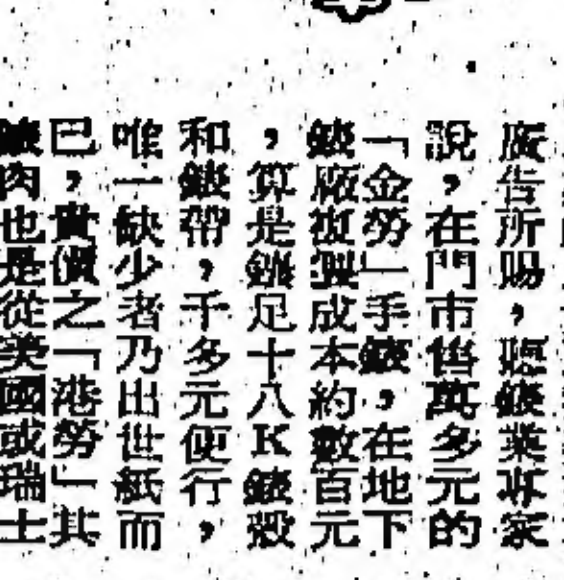 廣告所賜，聽錶業專家
說，在門市售萬多元的
「金勞」手錶，在地下
錶廠復製成本約數百元
，算是鑲足十八K錶殼
和錶帶，千多元便行，
唯一缺少者乃出世紙而
已，實價之「港勞」其
錶肉也是從美國或瑞士